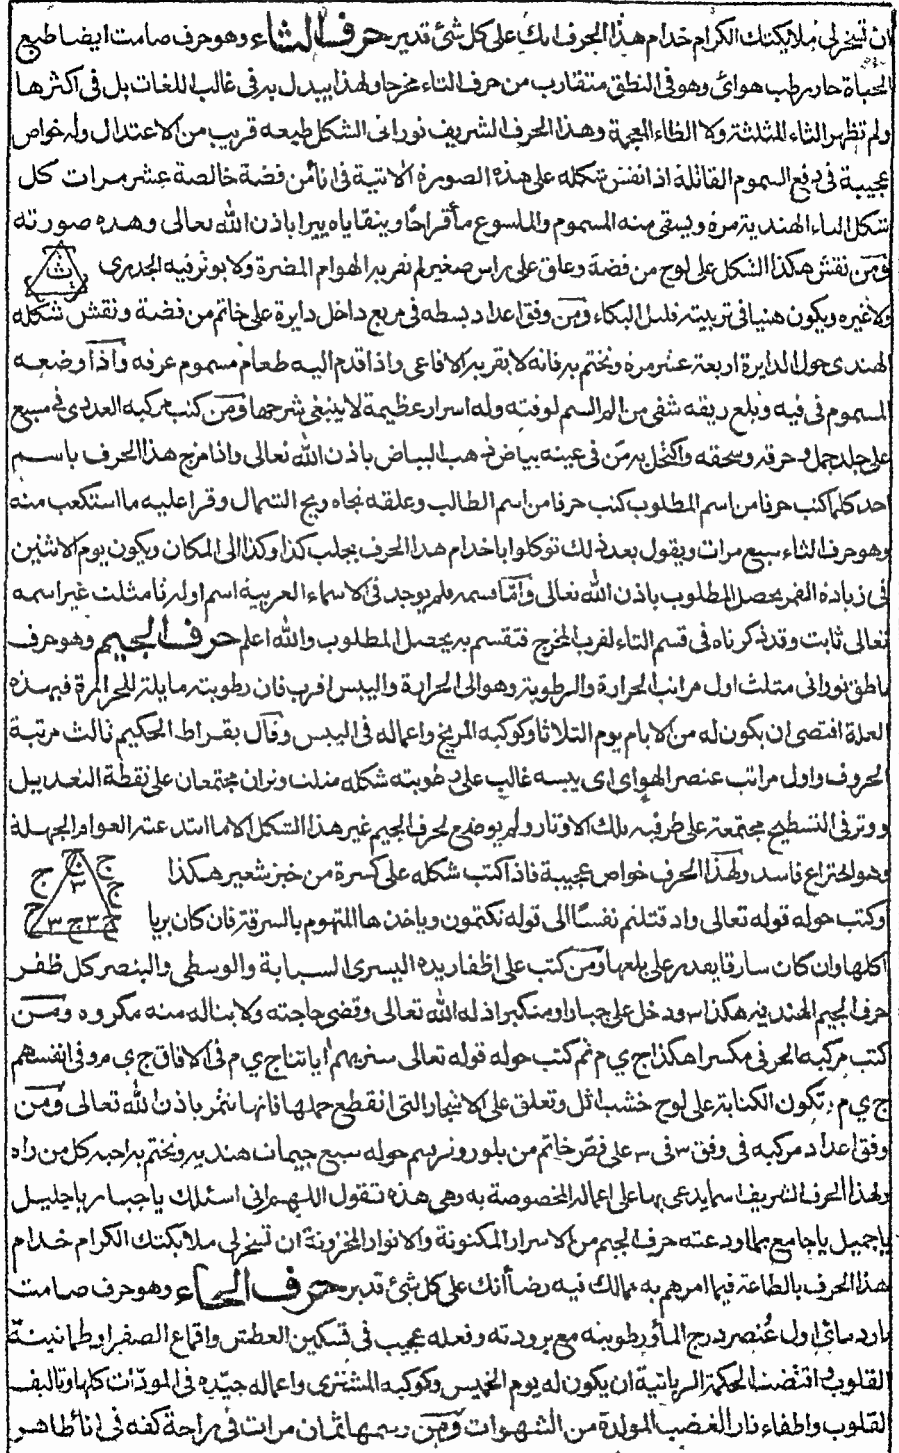 ان تسخر لى ملايكتك الكرام خدام هذا الحرف انك على كل شئ قدير حرف الثاء وهو حرف صامت ايضا طبع
الحياة حار رطب هوائ وهو فى النطق متقارب من حرف التاء مخرجا ولهذا يبدل به فى غالب اللغات بل فى اكثرها
ولم تظهر الثاء المثلثة ولا الظاء المعجمة وهذا الحرف الشريف نورانى الشكل طبعه قريب من الاعتدال وله خواص
عجيبة فى دفع السموم القاتلة اذا نقش شكله على هذه الصورة الاتية فى اناء من فضة خالصة عشر مرات كل
شكل الماء الهندية مرة ويسقى منه المسموم والملسوع مأ قراحا ويتقاياه يبرا باذن الله تعالى وهذه صورته
ومن نقش هكذا الشكل على لوح من فضة وعلق على راس صغير لم تقربه الهوام المضرة ولا يوثر فيه الجدرى
ولا غيره ويكون هنيا فى تربيته قليل البكاء ومن وفق اعداد بسطه فى مربع داخل دايرة على خاتم من فضة ونقش شكله
الهندى حول الدايرة اربعة عشر مرة وتختم به فانه لا تقربه الافاعى واذا قدم اليه طعام مسموم عرفه واذا وضعه
المسموم فى فيه وبلع ريقه شفى من الم السم لوقته وله اسرار عظيمة لا ينبغى شرحها ومن كتب مركبه العددى فى مسبع
على جلد جمل وحرقه وسحقه واكتحل به من فى عينه بياض ذهب البياض باذن الله تعالى واذا مزج هذا الحرف باسم
احد كلما كتب حرفا من اسم المطلوب كتب حرفا من اسم الطالب وعلقه تجاه ريح الشمال وقرا عليه ما استكعب منه
وهو حرف الثاء سبع مرات ويقول بعد ذلك توكلوا يا خدام هذا الحرف بجلب كذا وكذا الى المكان ويكون يوم الاثنين
فى زيادة القمر يحصل المطلوب باذن الله تعالى وأما قسمه فلم يوجد فى الاسماء العربية اسم اوله ثا مثلث غير اسمه
تعالى ثابت وقد ذكرناه فى قسم التاء لقرب المخرج فتقسم به يحصل المطلوب والله اعلم حرف الجيم وهو حرف
ناطق نورانى مثلث اول مراتب الحرارة والرطوبة وهو الى الحرارة واليبس اقرب فان رطوبته مايلة للحرارة فبهذه
العلة اقتضى ان يكون له من الايام يوم الثلاثا وكوكبه المريخ واعماله فى اليبس وقال بقراط الحكيم ثالث مرتبة
الحروف واول مراتب عنصر الهواى اى يبسه غالب على رطوبته شكله مثلث وتران مجتمعان على نقطة التعديل
ووتر فى التسطيح مجتمعة على طرفيه تلك الاوتار ولم يوضع لحرف الجيم غير هذا الشكل الا ما ابتدعته العوام الجهلة
وهو اختراع فاسد ولهذا الحرف خواص عجيبة فاذا كتب شكله على كسرة من خبز شعير هكذا
وكتب حوله قوله تعالى واد قتلتم نفسا الى قوله تكتمون وياخذها المتهوم بالسرقة فان كان بريا
اكلها وان كان سارقا يعدر على بلعها ومن كتب على اظفار يده اليسرى السبابة والوسطى والبنصر كل ظفر
حرف الجيم الهندية هكذا ٣ ودخل على جبارا ومتكبر اذله الله تعالى وقضى حاجته ولا يناله منه مكروه ومن
كتب مركبه الحرفى مكسرا هكذا ج ي م ثم كتب حوله قوله تعالى سنريهم اياتنا ج ي م فى الافاق ج ي م وفى انفسهم
ج ي م وتكون الكتابة على لوح خشب اثل وتعلق على الاشجار التى انقطع حملها فانها تثمر باذن الله تعالى ومن
وفق اعداد مركبه فى وفق ٣ فى ٣ على فص خاتم من بلور ورسم حوله سبع جيمات هندية وتختم به احبه كل من راه
ولهذا الحرف الشريف اسما يدعى بها على اعماله المخصوصة به وهى هذه تقول اللهم انى اسئلك يا جبار يا جليل
يا جميل يا جامع بما اودعته حرف الجيم من الاسرار المكنونة والانوار المخزونة ان تسخر لى ملايكتك الكرام خدام
هذا الحرف بالطاعة فيما امرهم به مما لك فيه رضا أنك على كل شئ قدير حرف الحاء وهو حرف صامت
بارد مائى اول عنصر درج المأ ورطوبته مع برودته وفعله عجيب فى تسكين العطش واقماع الصفرا وطمانينة
القلوب واقتضت الحكمة الربانية ان يكون له يوم الخميس وكوكبه المشترى واعماله جيده فى المودات كلها وتاليف
القلوب واطفاء نار الغضب المولدة من الشهوات ومن رسمها ثمان مرات فى راحة كفه فى انا طاهر